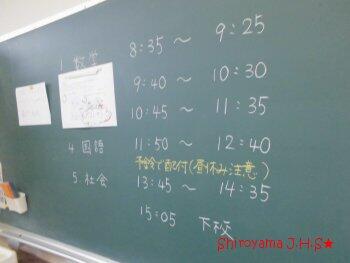 1 数学 8:35 〜 9:25
9:40 〜 10:30
10:45 〜 11:35
4 国語 11:50 〜 12:40
予鈴で配付(昼休み注意)
5. 社会 13:45 〜 14:35
15:05 下校
Shiroyama J.H.S★